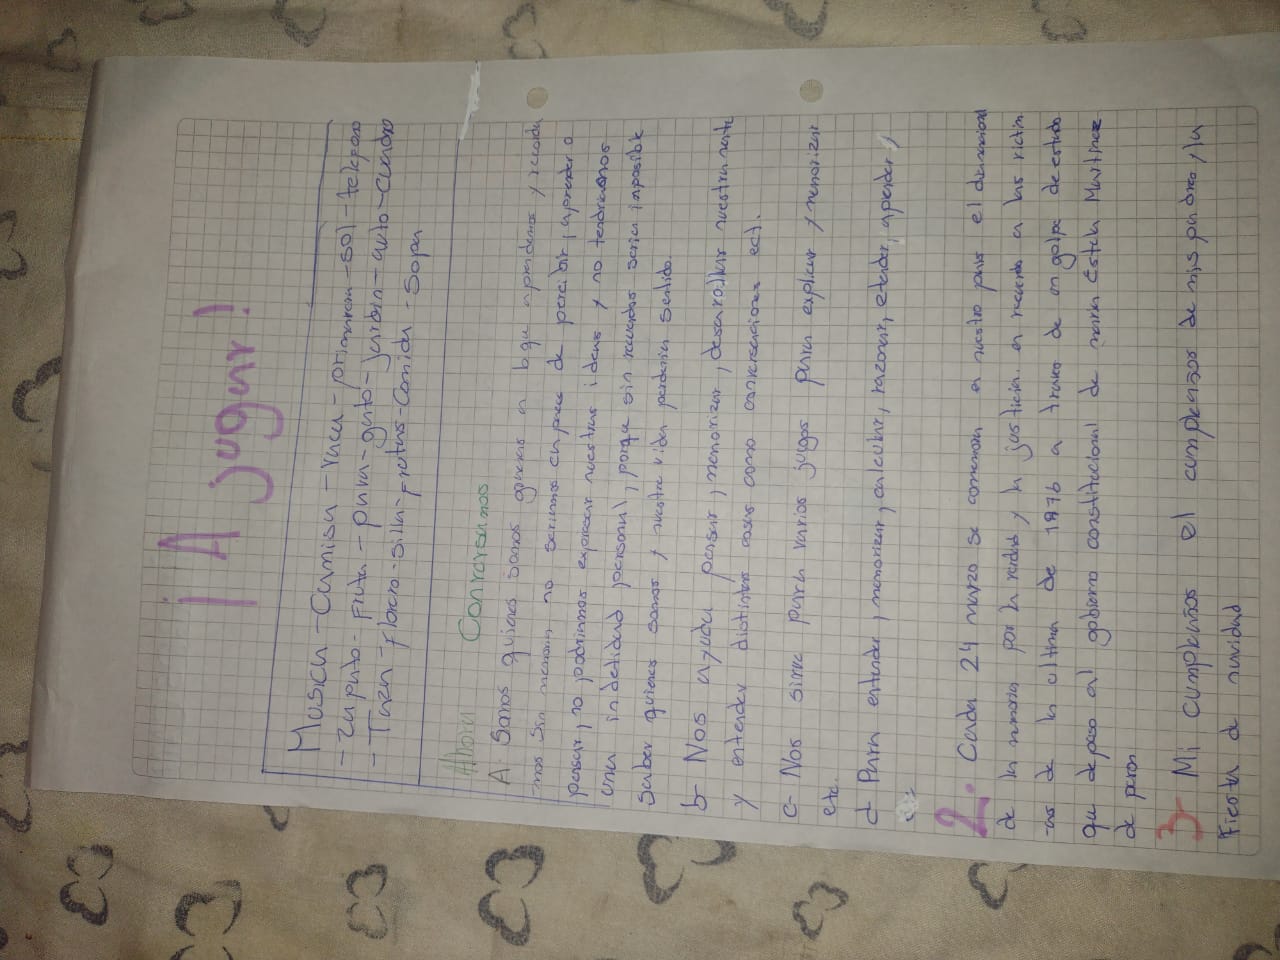 ¡A jugar!
Musica - Camisa - vaca - primavera - sol - telefono
- zapato - Fruta - puma - gato - jardin - auto - cuadro
- Taza - florero - silla - frutas - comida - sopa
Ahora Conversamos
A- Somos quienes somos gracias a lo que aprendemos y recorda
-mos sin memoria no seriamos capaces de percibir, aprender o
pensar, no podriamos expresar nuestras ideas y no tendriamos
una indetidad personal, porque sin recuerdos seria imposible
Saber quienes somos y nuestra vida perderia sentido.
b- Nos ayuda pensar, memorizar, desarollar nuestra mente
y entender distintas cosas como conversaciones ect.
c- Nos sirve para varios juegos para explicar y memorizar
etc.
d- Para entender, memorizar, calcular, razonar, etender, aprender,
2. Cada 24 marzo se comemora en nuestro pais el dia nacional
de la memoria por la verdad y la justicia. en recuerdo a las victim
-as de la ultima de 1976 a traves de un golpe de estado
que depaso al gobierno constitucional de maria Estela Martinez
de peron
3- Mi cumpleaños el cumpleaños de mis padres, la
Fiesta de navidad